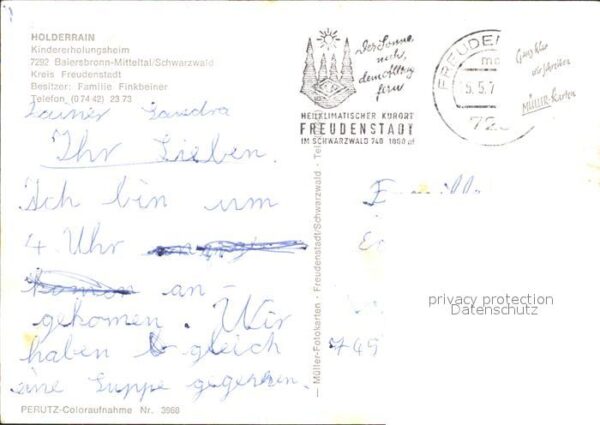 HOLDERRAIN
Kindererholungsheim
7292 Baiersbronn-Mitteltal/Schwarzwald
Kreis Freudenstadt
Besitzer: Familie Finkbeiner
Telefon (0 74 42) 23 73
Ihr Lieben.
Ich bin um
4 Uhr
an-
gekomen. Wir
haben gleich
eine Suppe gegessen.
PERUTZ-Coloraufnahme Nr. 3968
Müller-Fotokarten - Freudenstadt/Schwarzwald - Tel
Der Sonne
nah,
dem Alltag
fern
HEILKLIMATISCHER KURORT
FREUDENSTADT
IM SCHWARZWALD 740-1000 m
FREUDEN
5.5.7
72
Ganz klar
wir schreiben
MÜLLER-Karten
749
privacy protection
Datenschutz